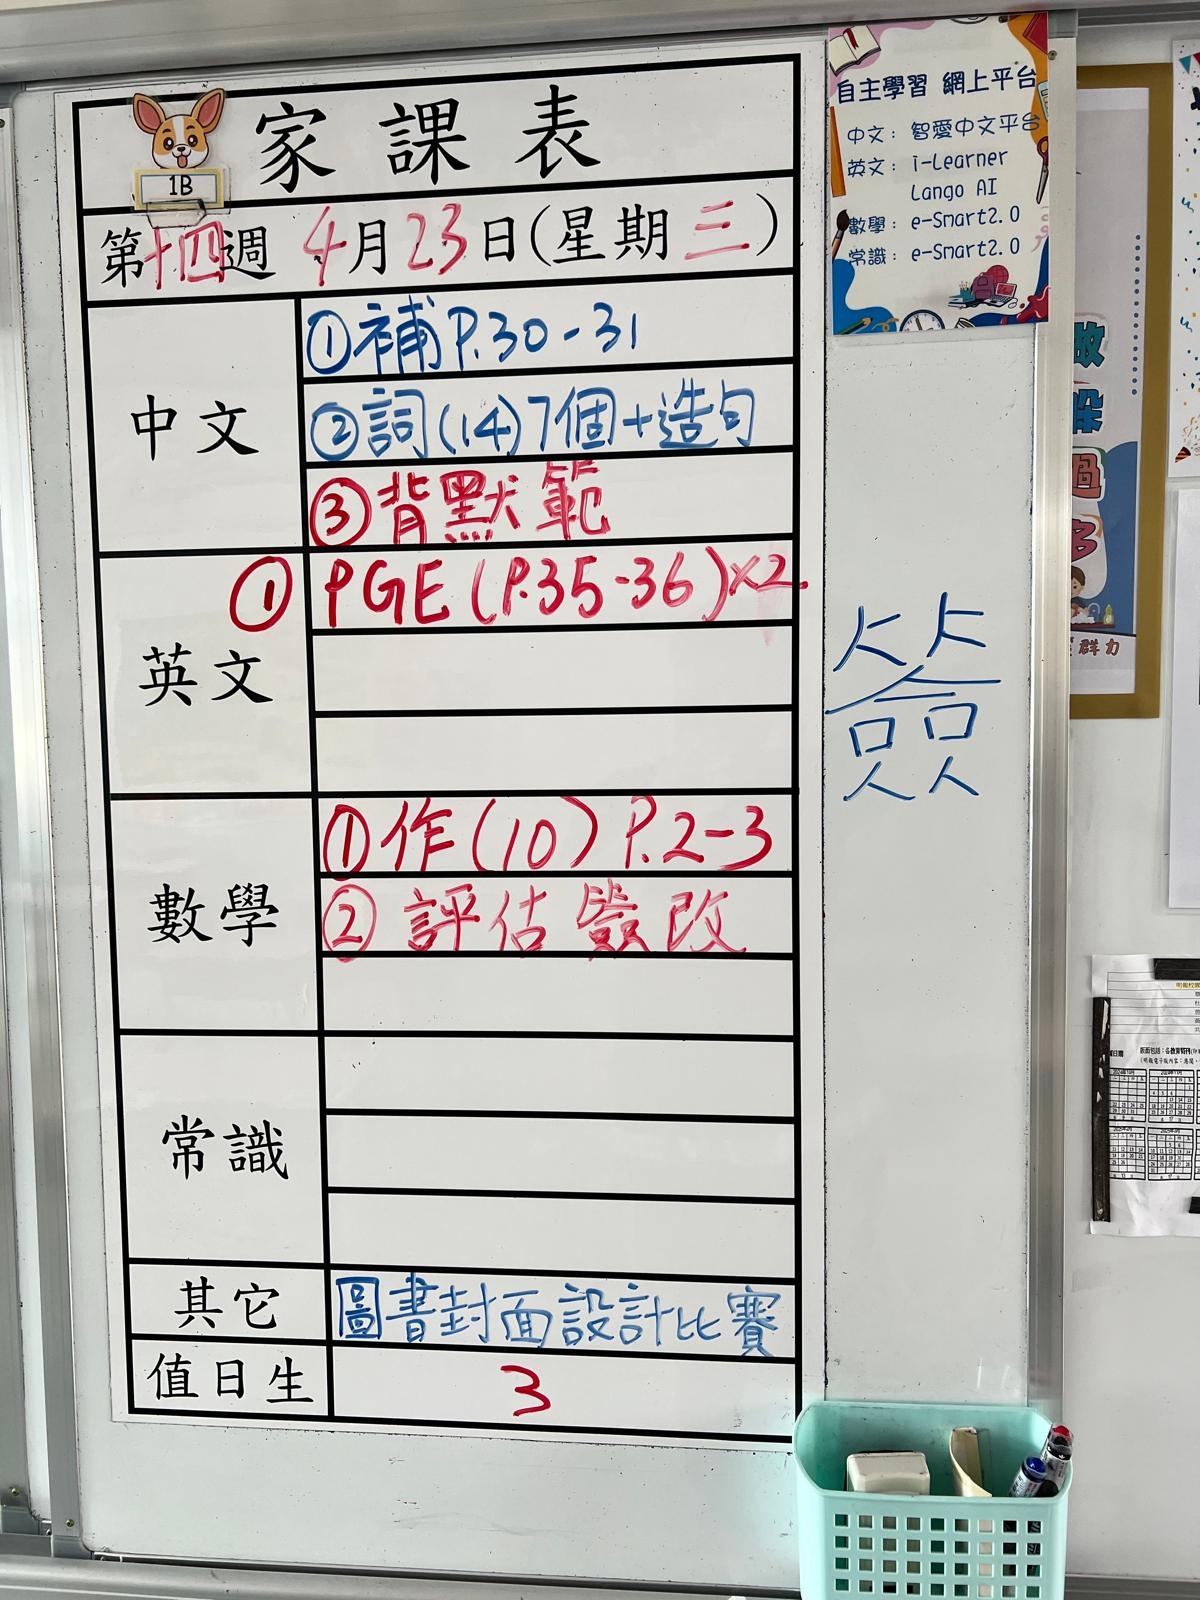 家課表
1B
第十四週 4月23日(星期三)
中文
①補P.30-31
②詞(14)7個+造句
③背默範
英文
①PGE(P.35-36)×2
數學
①作(10) P.2-3
②評估簽改
常識
其它
圖書封面設計比賽
值日生
3
自主學習 網上平台
中文：智愛中文平台
英文：i-Learner
Lango AI
數學：e-Smart2.0
常識：e-Smart2.0
簽
群力